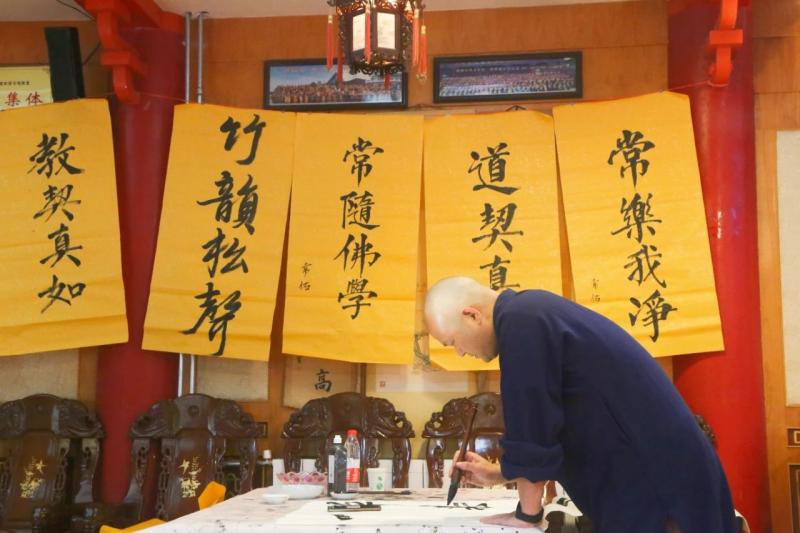 集体
教契真如
竹韻松聲
常隨佛學
常佑
道契真
常樂我淨
常佑
高